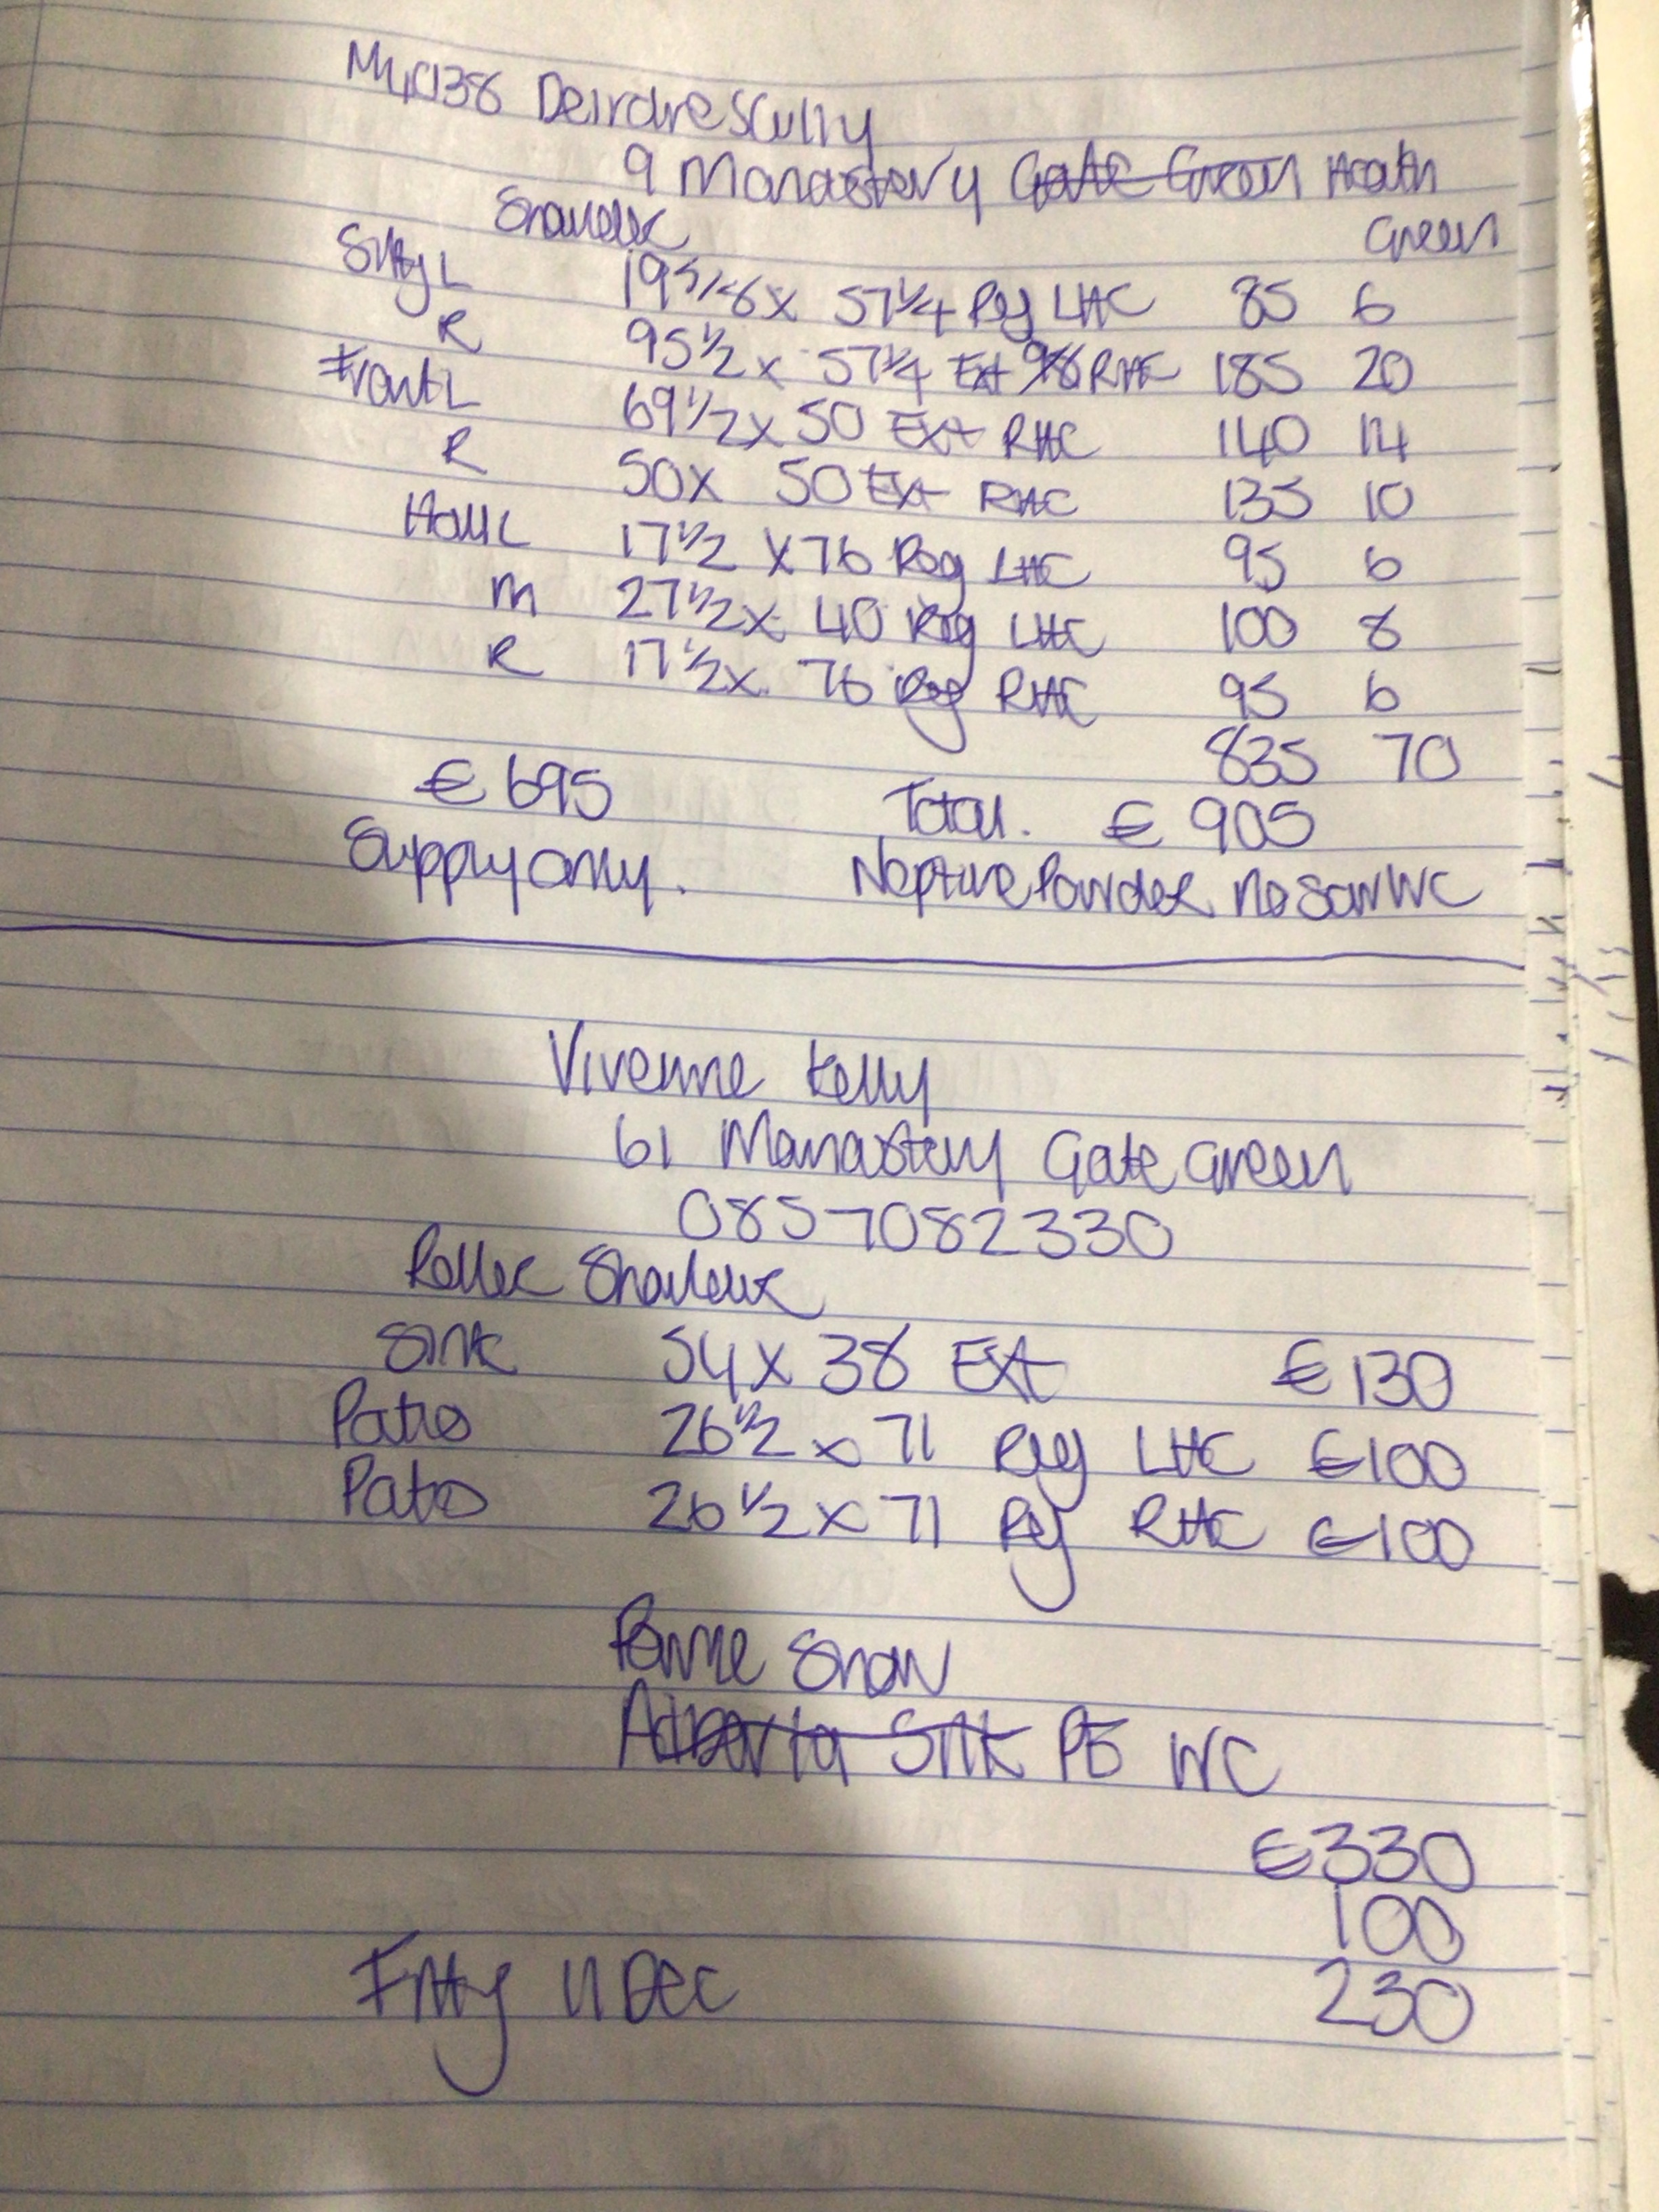 Deirdre Scully
9 Monastery Gate Green Heath
Green
L 19 5/8 x 57 1/4 Reg LHC 85 6
R 95 1/2 x 57 1/4 Ext RHC 185 20
Front L 69 1/2 x 50 Ext RHC 140 14
R 50 x 50 Ext RHC 135 10
Hall L 17 1/2 x 76 Reg LHC 95 6
M 27 1/2 x 40 Reg LHC 100 8
R 17 1/2 x 76 Reg RHC 95 6
835 70
€695 Total. € 905
Supply only. Neptune Powder No Scw WC
Vivenne Kelly
61 Monastery Gate Green
0857082330
Roller
Sink 54 x 38 Ext €130
Patio 26 1/2 x 71 Reg LHC €100
Patio 26 1/2 x 71 Reg RHC €100
Snow
Silk PE WC
€330
100
230
Fitty 11 Dec